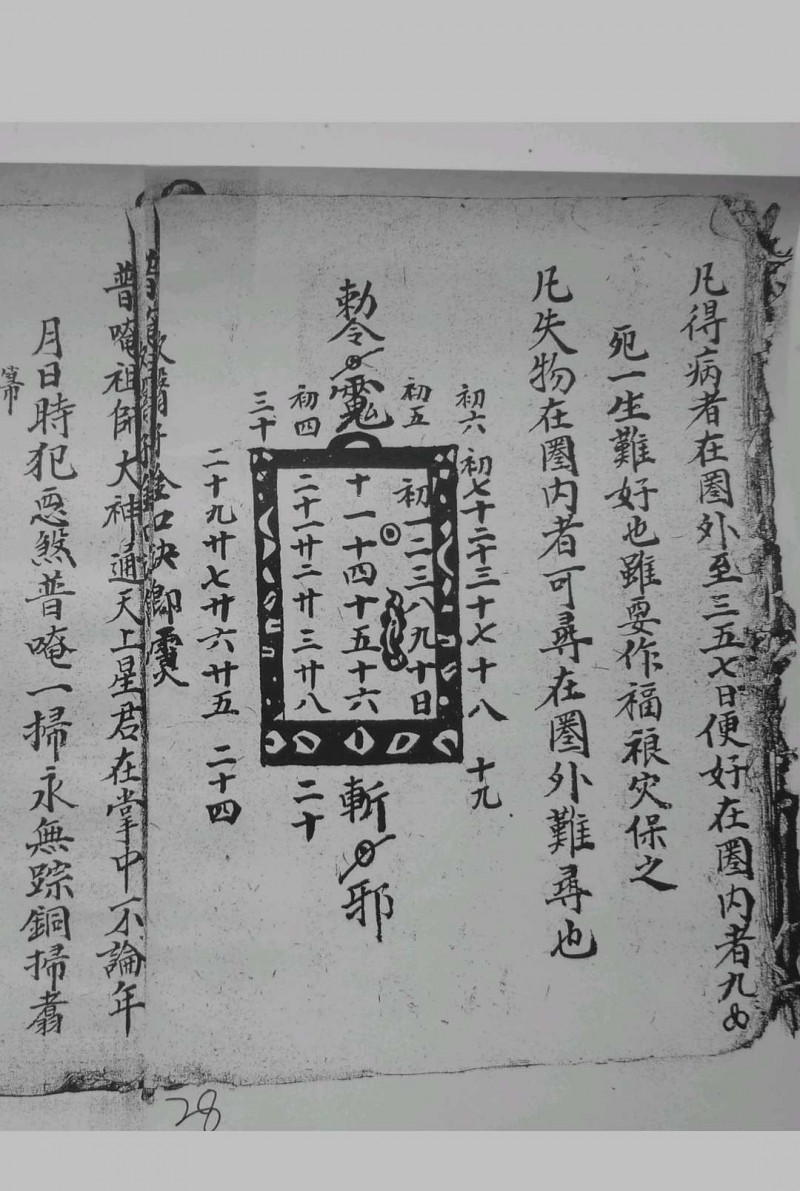 凡得病者在圈外至三五七日便好在圈内者九
死一生難好也雖要作福禳灾保之
凡失物在圈内者可尋在圈外難尋也
初六
初七十二十三十七十八
十九
初五
初一二三八九十日
勅令
十一十四十五十六
斬邪
初四
二十一廿二廿三廿八
二十
三十
二十九廿七廿六廿五
二十四
金口訣
普唵祖師大神通天上星君在掌中不論年
月日時犯惡煞普唵一掃永無踪銅掃
28